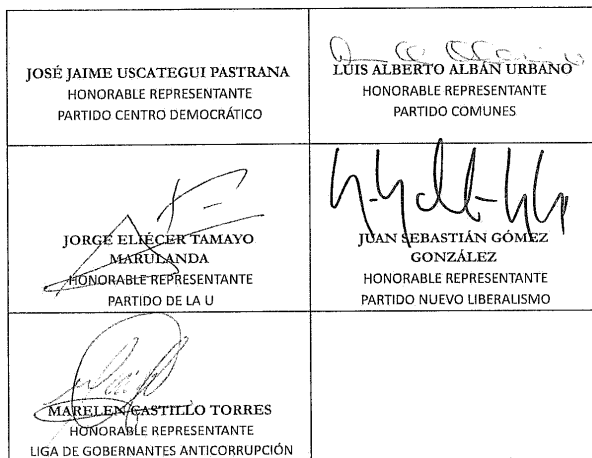 JOSÉ JAIME USCATEGUI PASTRANA
HONORABLE REPRESENTANTE
PARTIDO CENTRO DEMOCRÁTICO
LUIS ALBERTO ALBÁN URBANO
HONORABLE REPRESENTANTE
PARTIDO COMUNES
JORGE ELIÉCER TAMAYO
MARULANDA
HONORABLE REPRESENTANTE
PARTIDO DE LA U
JUAN SEBASTIÁN GÓMEZ
GONZÁLEZ
HONORABLE REPRESENTANTE
PARTIDO NUEVO LIBERALISMO
MARELEN CASTILLO TORRES
HONORABLE REPRESENTANTE
LIGA DE GOBERNANTES ANTICORRUPCIÓN